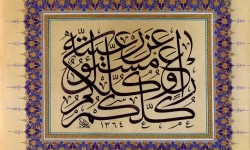 كلكم راع وكلكم مسئول عن رعيته
١٣٦٤